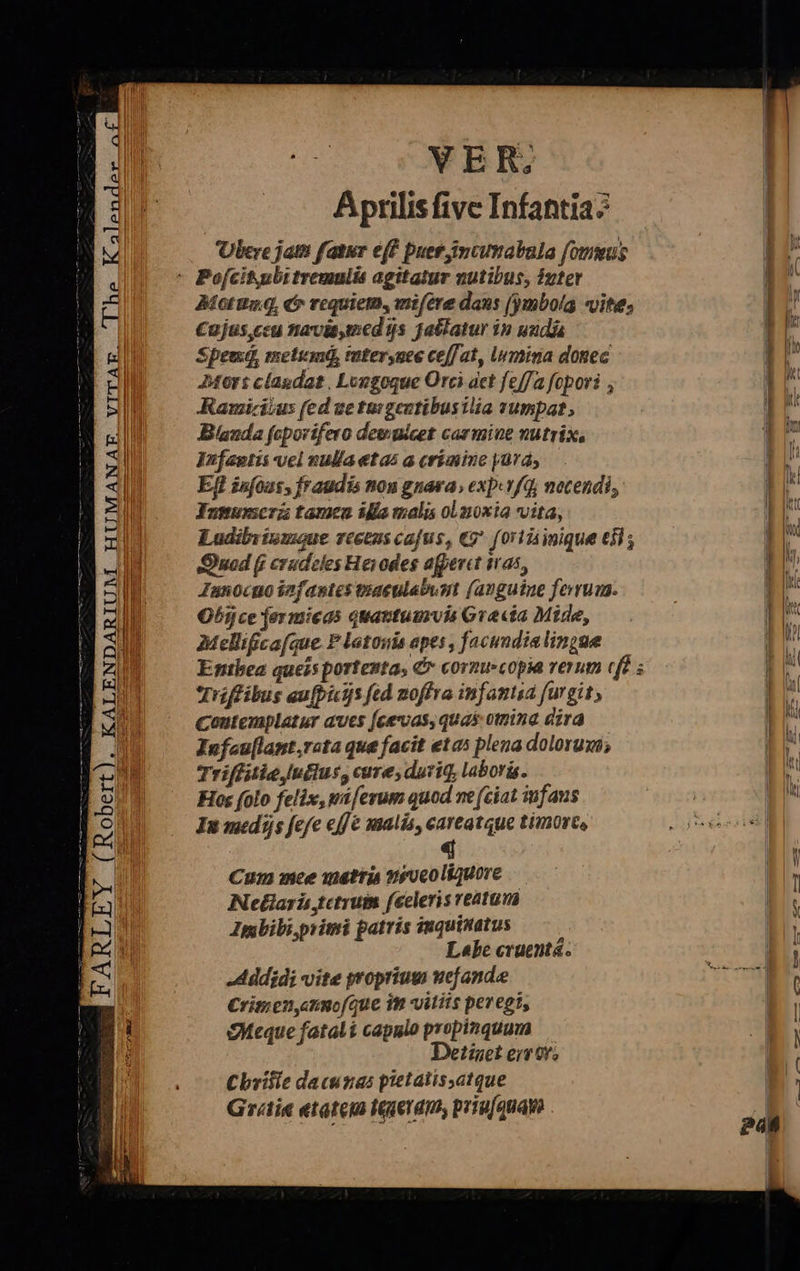 FARLEY (Robert). KALENDARIUM HUMANAE VITAE. The Kalender of
VER.
Aprilis ſive Infantia.
Ubere jam ſatur eſt puer, incunabula ſomnus
Poſcit, ubi tremulis agitatur nutibus, inter
Motumq, & requiem, miſere dans ſymbola vitæ,
Cujus, ceu navis, medijs jactatur in undis
Spemq, metumq, inter, nec ceſſat, lumina donec
Mors claudat. Longoque Orci det feſſa ſopori,
sed ne turgentibus ilia rumpat,
Blanda ſoporifero demulcet carmine nutrix.
Infantis vel nulla etas a crimine pura,
Eſt inſons, fraudis non gnara, experſq, nocendi,
Innumeris tamen illa malis obnoxia vita,
Ludibriumque recens caſus, & ſortis inique eſt;
Quod ſi crudeles Herodes aſperet iras,
Innocuo infantes maculabunt ſanguine ferrum.
Obijce formicas quantumvis Græcia Mide,
Mellificaſque Platonis apes, facundia lingue
Enthea queis portenta, & cornu-copia rerum eſt;
Triſtibus auſpicijs ſed noſtra infantia ſurgit,
Contemplatur aves ſcævas, quas omina dira
Infauſtant, rata que facit etas plena dolorum,
Triſtitiæ, luctus, cure, duriq, laboris.
Hoc ſolo felix, miſerum quod neſciat infans
In medijs ſeſe eſſe malis, careatque timore,
¶
Cum mee matris niveo liquore
Nectaris, tetrum ſceleris reatum
Imbibi, primi patris inquinatus
Labe cruentâ.
Addidi vite proprium nefande
Crimen, annoſque in vitiis peregi,
Meque fatali capulo propinquum
Detinet error.
Chriſte da cunas pietatis, atque
Gratie etatem teneram, priuſquam